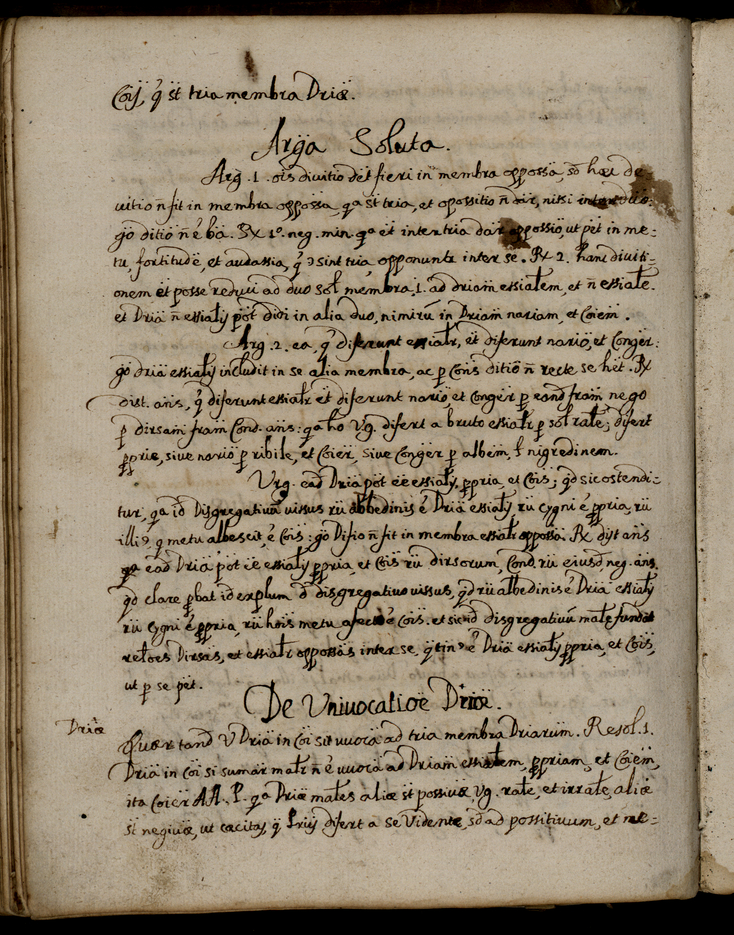 Coïj, q̃ st̃ tria membra Driæ̃.
Arg̃ja Soluta.
Arg. 1. oïs divitio det̃ fieri iñ membra opposs̃a, sd̃ hæc de=
vitio ñ fit in membra opposs̃a, qᵃ st̃ tria, et opossitio ñ dãr, nitsi inter duo:
go ditio ñ ẽ bã. Rx 1º. neg. min. qᵃ et̃ inter tria dãr oppossio, ut pet̃ in me=
tu, fortitudẽ, et audassia, q̃ sint tria opponuntr inter se. Rx 2. hanc diviti=
onem et̃ posse reduci ad duo sol̃ membra, 1. ad driam̃ essialẽm, et ñ essialẽ.
et Driã ñ essialij pot̃ dici in alia duo, nimirũ in Driam̃ nariam, et Coiẽm.
Arg. 2. ea, q̃ diferunt essialr̃, et̃ diferunt nario, et Conger:
go driã essialij includit in se alia membra, ac p̱ Coñs ditiõ ñ recte se het̃. Rx
dist. añs, q̃ diferunt essialr̃ et̃ diferunt nario, et Conger p̱ eand̃ fram̃ nego
p̱ dirsam̃ fram̃ Cond. añs: qᵃ ho Vg. difert a bruto essialr̃ p̱ sol ratẽ; difert
p̱prie, sive nario p̱ ribile, et Coier̃, sive Conger p̱ albem̃, ł nigredinem.
Urg. ead̃ Driã pot̃ eẽ essialij, p̱pria, et Coñs; qd̃ sic ostendi=
tur, qᵃ id Disgregativũ vissus rũ albedinis ẽ Driã essialij rũ cygni ẽ p̱pria, rũ
illiꝰ, q̃ metu albescit, ẽ Coïs: go Disio ñ fit in membra essialr̃ opposs̃a. Rx. dist añs
ead̃ Driã pot̃ eẽ essialij p̱pria, et Coïs rũ dirsorum, Cond. rũ eiusd̃ neg. añs.
qd̃ clare p̱bat id explum̃ d̃ disgregativo vissus, qd̃ rũ albedinis ẽ Driã essialij
rũ cygni ẽ p̱pria, rũ hoïs metu afecti ẽ Coïs. et sic id disgregativũ malr̃ fundat
reloẽs Dirsas, et essialr̃ opposs̃as inter se, ẽ Driã essialij p̱pria, et Coïs,
ut p̱ se pet̃.
De Univocatioẽ Driæ̃.
Driæ̃
Quær tand̃ V Driã in Coi sit uvocã ad tria membra Driarum. Resol. 1.
Driã in Coi si sumãr malr̃ ñ ẽ uvocã ad Driam̃ essialem, p̱priam, et Coiẽm,
ita Coier̃ AA. P. qᵃ Driæ̃ malẽs aliæ st̃ possivæ, Vg. ralẽ, et irralẽ, aliæ
st̃ negivæ, ut cæcitas, q̃ difert a se Vidente, sd̃ ad possitivum, et ne=